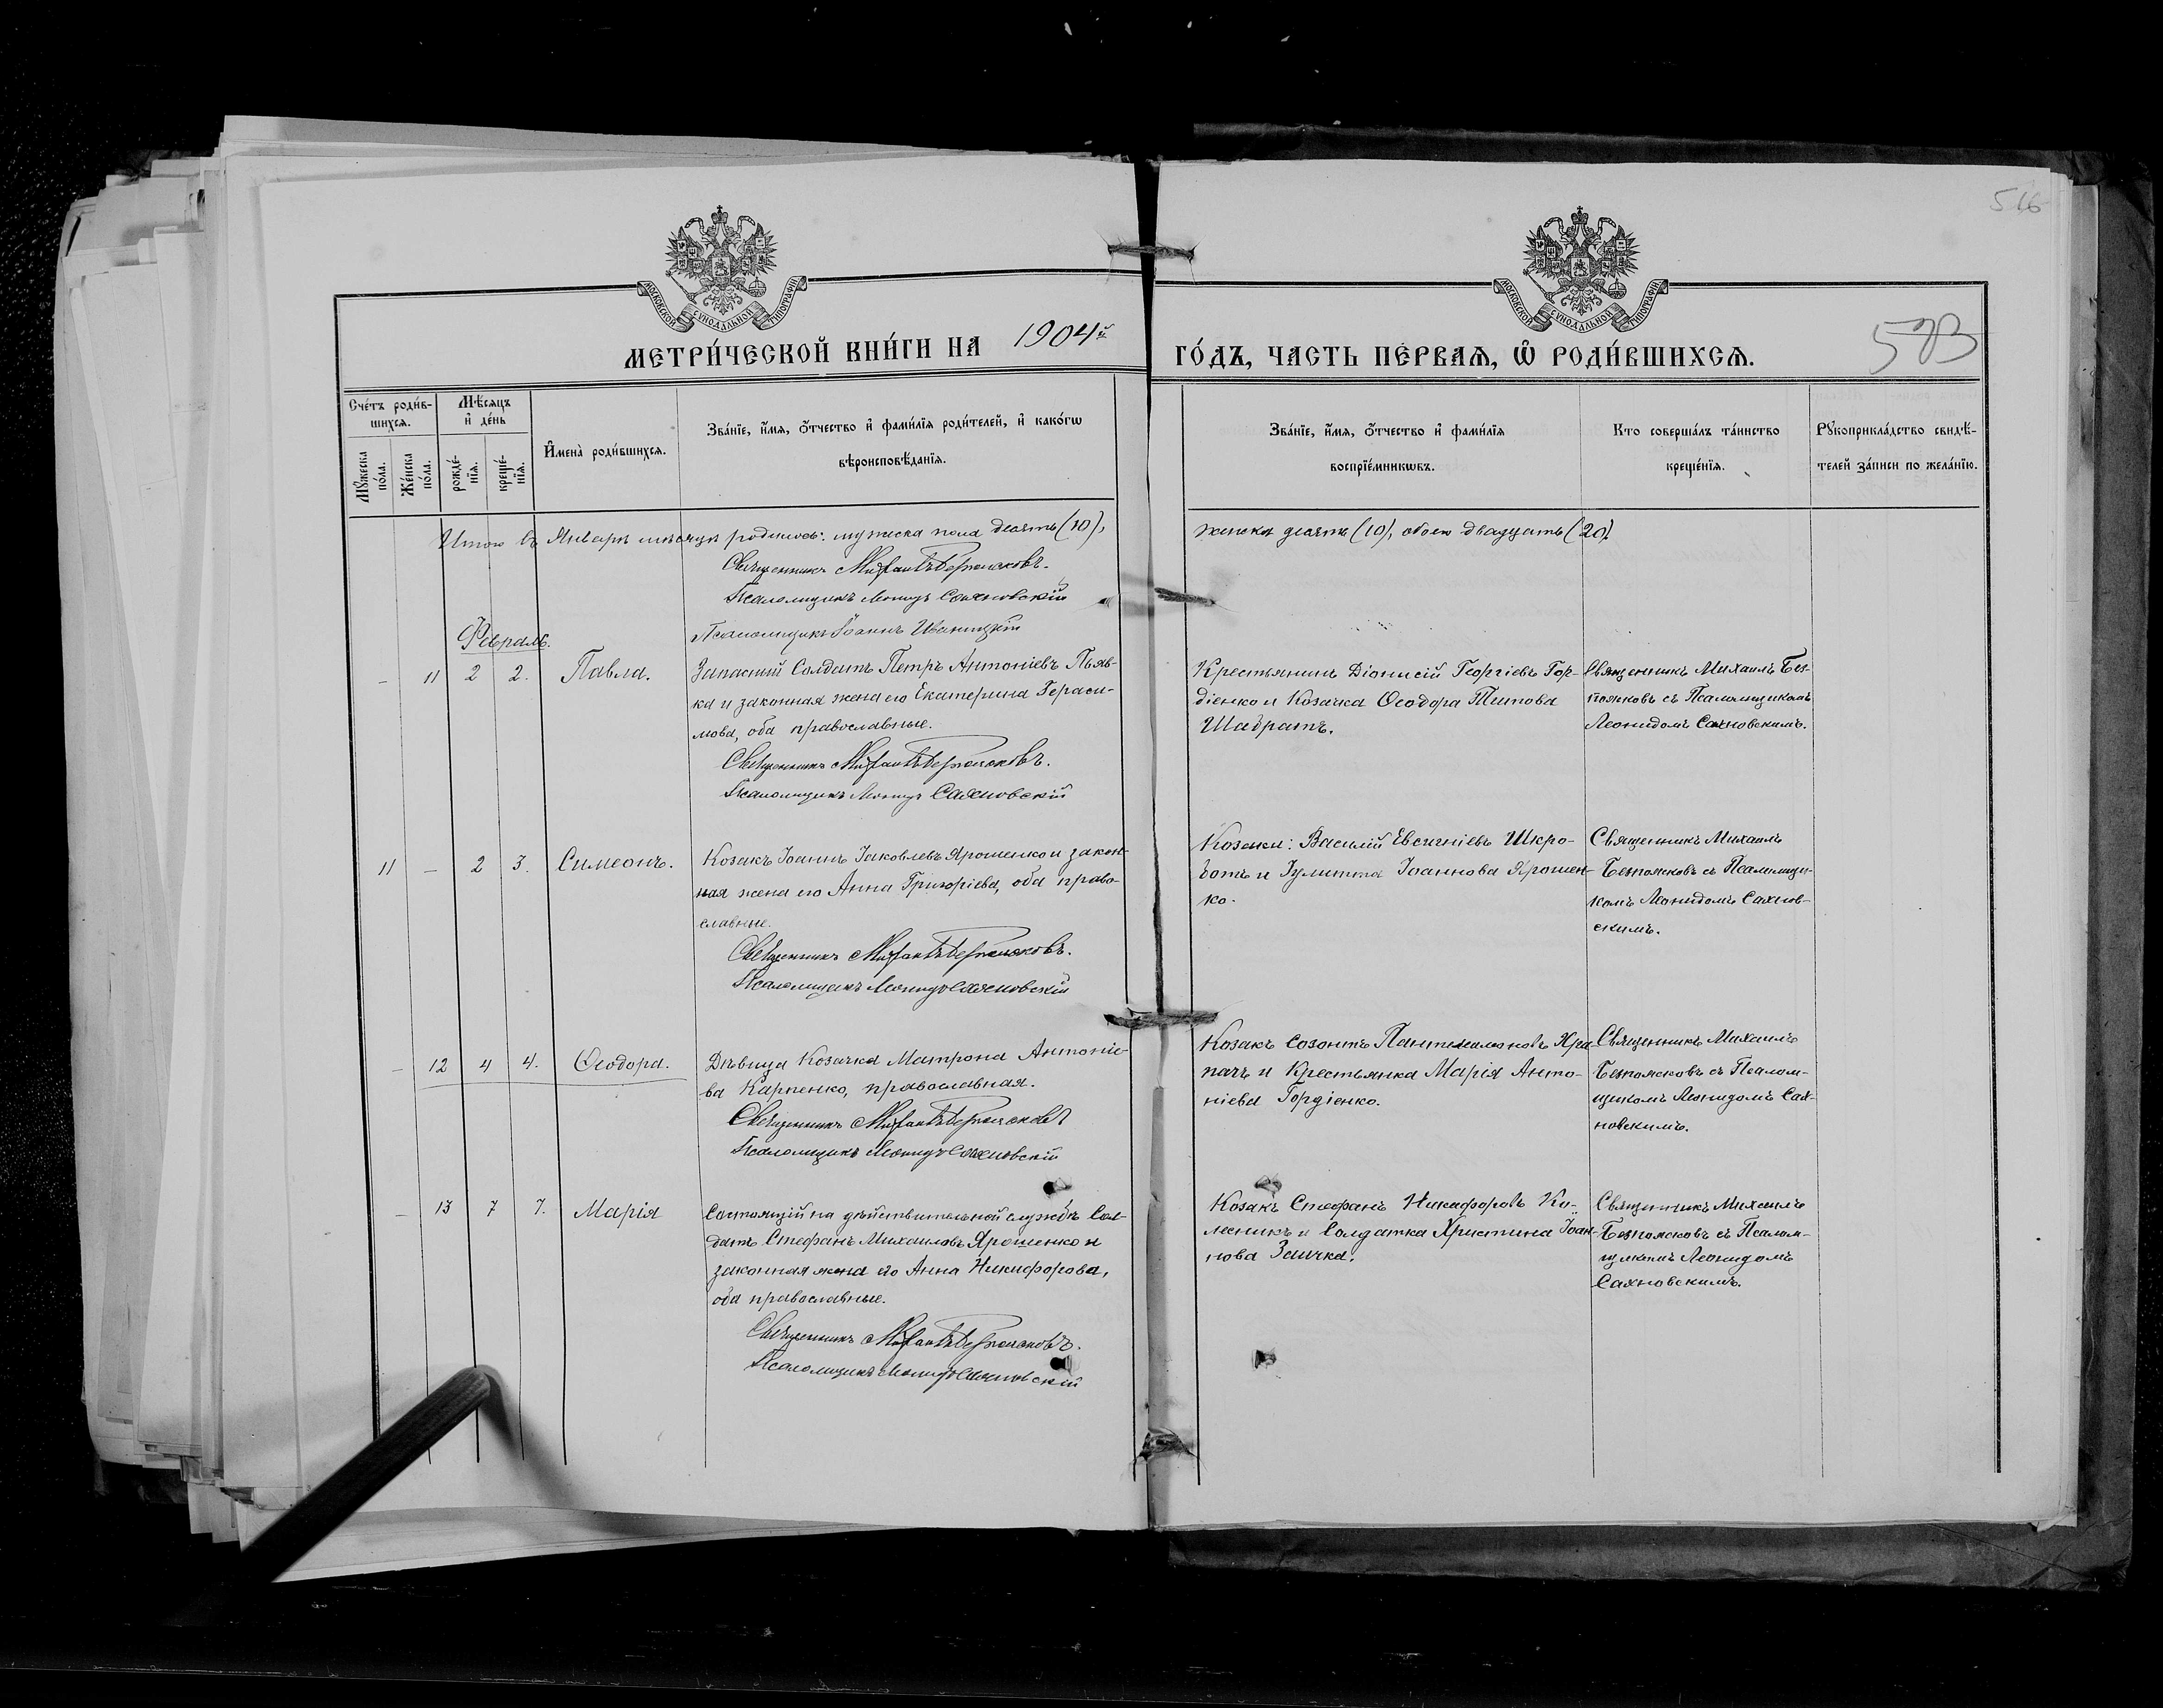 516
МОСКОВСКОЙ СѴНОДАЛЬНОЙ ТИПОГРАФІИ
МОСКОВСКОЙ СѴНОДАЛЬНОЙ ТИПОГРАФІИ
МЕТРИ́ЧЕСКОЙ КНИ́ГИ НА 1904й
ГО́ДЪ, ЧАСТЬ ПЕ́РВАѦ, Ѿ РОДИ́ВШИХСѦ.
573
Сче́тъ роди́в-
шихсѧ.
Мꙋ́жеска
по́ла.
Же́нска
по́ла.
Мѣ́сѧцъ
и҆ де́нь
рожде́-
нїѧ.
креще́-
нїѧ.
И҆мена̀ роди́вшихсѧ.
Зва́нїе, и҆́мѧ, ѻ҆́тчество и҆ фами́лїѧ роди́телей, и҆ како́гѡ
вѣроисповѣ́данїѧ.
Зва́нїе, и҆́мѧ, ѻ҆́тчество и҆ фами́лїѧ
воспрїе́мникѡвъ.
Кто соверша́лъ та́инство
креще́нїѧ.
Рꙋкоприкла́дство свидѣ́-
телей за́писи по жела́нїю.
Итого въ Январѣ мѣсяцѣ родилось: мужеска пола десять (10),
женска десять (10), обоего двадцать (20).
Священникъ Михаилъ Безпоясковъ.
Псаломщикъ Леонидъ Сахновскій
Псаломщикъ Іоаннъ Иваницкій
Февраль.
– 11 2 2. Павла.
Запасный Солдатъ Петръ Антоніевъ Пьяв-
ка и законная жена его Екатерина Гераси-
мова, оба православные.
Священникъ Михаилъ Безпоясковъ.
Псаломщикъ Леонидъ Сахновскій
Крестьянинъ Діонисій Георгіевъ Гор-
діенко и Козачка Ѳеодора Титова
Шадратъ.
Священникъ Михаилъ Без-
поясковъ съ Псаломщикомъ
Леонидомъ Сахновскимъ.
11 – 2 3. Симеонъ.
Козакъ Іоаннъ Іаковлевъ Ярошенко и закон-
ная жена его Анна Григоріева, оба право-
славные.
Священникъ Михаилъ Безпоясковъ.
Псаломщикъ Леонидъ Сахновскій
Козаки: Василій Евсигніевъ Шкро-
ботъ и Іулитта Іоаннова Ярошен-
ко.
Священникъ Михаилъ
Безпоясковъ съ Псаломщи-
комъ Леонидомъ Сахнов-
скимъ.
– 12 4 4. Ѳеодора.
Дѣвица Козачка Матрона Антоніе-
ва Карпенко, православная.
Священникъ Михаилъ Безпоясковъ
Псаломщикъ Леонидъ Сахновскій
Козакъ Созонтъ Пантелеимоновъ Хра-
пачъ и Крестьянка Марія Анто-
ніева Гордіенко.
Священникъ Михаилъ
Безпоясковъ съ Псалом-
щикомъ Леонидомъ Сах-
новскимъ.
– 13 7 7. Марія
Состоящій на дѣйствительной службѣ Сол-
датъ Стефанъ Михаиловъ Ярошенко и
законная жена его Анна Никифорова,
оба православные.
Священникъ Михаилъ Безпоясковъ.
Псаломщикъ Леонидъ Сахновскій
Козакъ Стефанъ Никифоровъ Ко-
лесникъ и Солдатка Христина Іоан-
нова Заичка.
Священникъ Михаилъ
Безпоясковъ съ Псалом-
щикомъ Леонидомъ
Сахновскимъ.